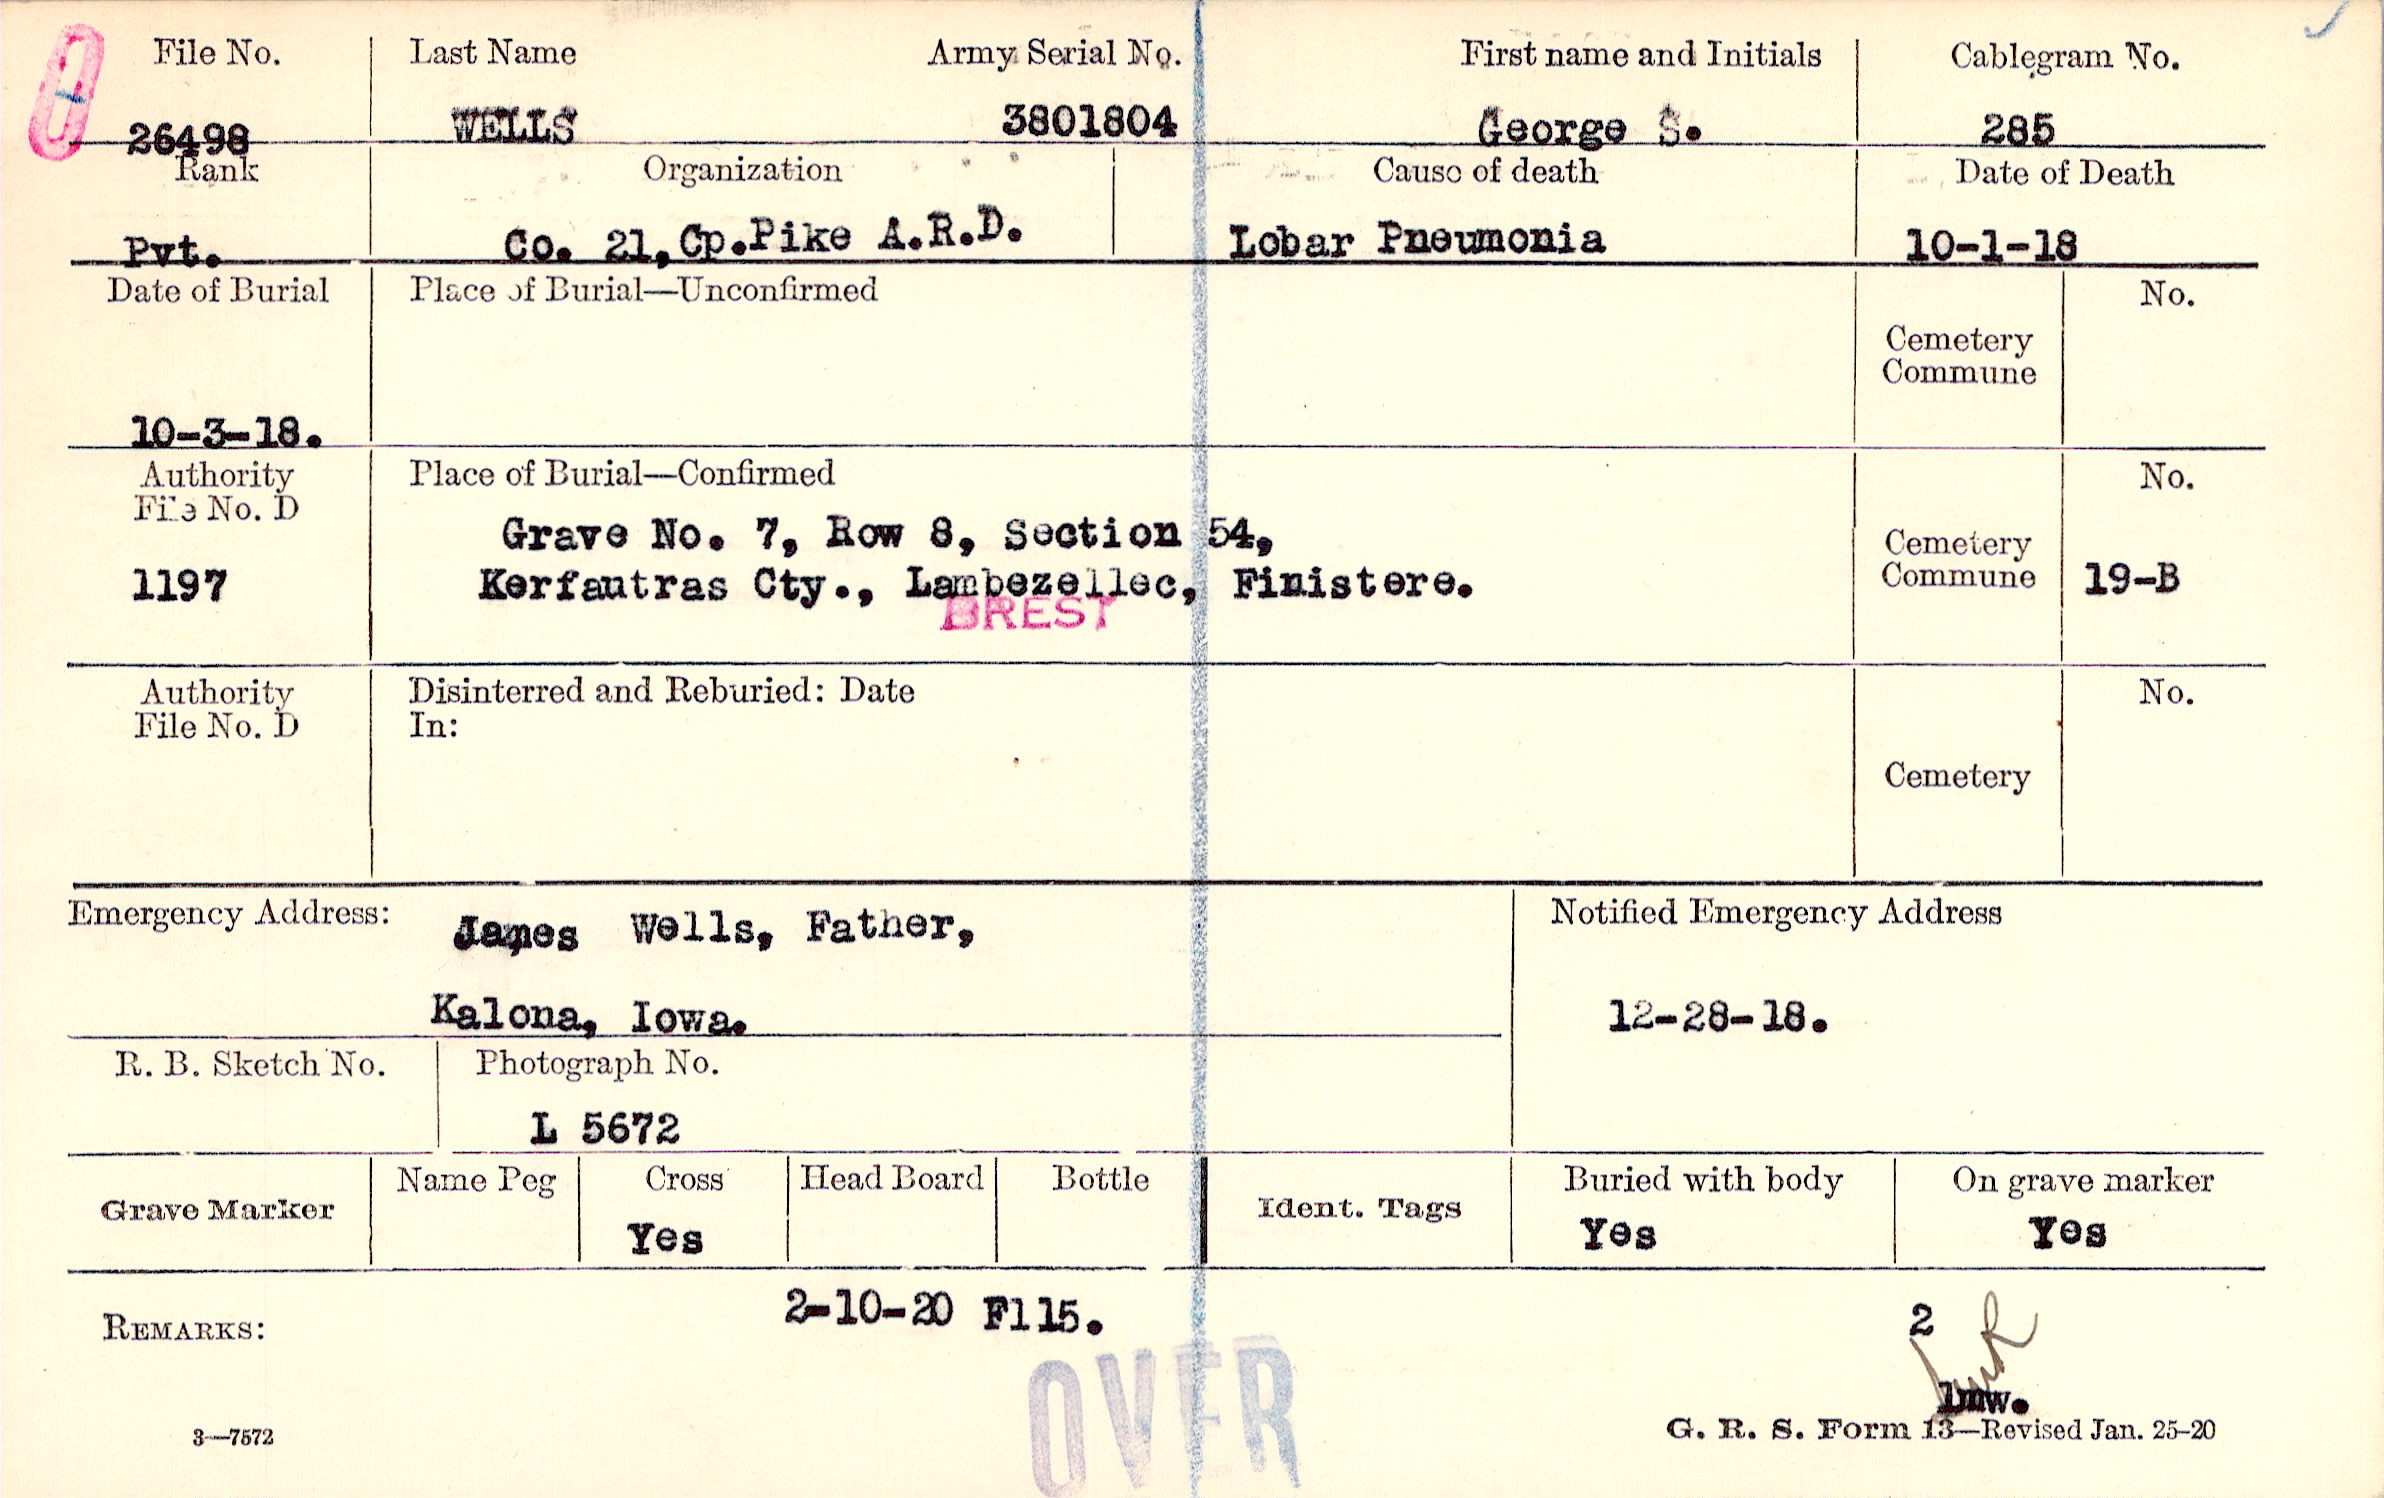 File No. Last Name Army Serial No. First name and Initials Cablegram No.
26498 WELLS 3801804 George S. 285
Rank Organization Cause of death Date of Death
Pvt. Co. 21, Cp.Pike A.R.D. Lobar Pneumonia 10-1-18
Date of Burial Place of Burial—Unconfirmed No.
Cemetery
Commune
10-3-18.
Authority Place of Burial—Confirmed No.
File No. D
Grave No. 7, Row 8, Section 54,
Cemetery
1197 Kerfautras Cty., Lambezellec, Finistere. Commune 19-B
BREST
Authority Disinterred and Reburied: Date No.
File No. D In:
Cemetery
Emergency Address: James Wells, Father, Notified Emergency Address
Kalona, Iowa. 12-28-18.
R. B. Sketch No. Photograph No.
L 5672
Grave Marker Name Peg Cross Head Board Bottle Ident. Tags Buried with body On grave marker
Yes Yes Yes
REMARKS: 2-10-20 F115. 2
OVER
lmw.
3—7572 G. R. S. Form 13—Revised Jan. 25-20